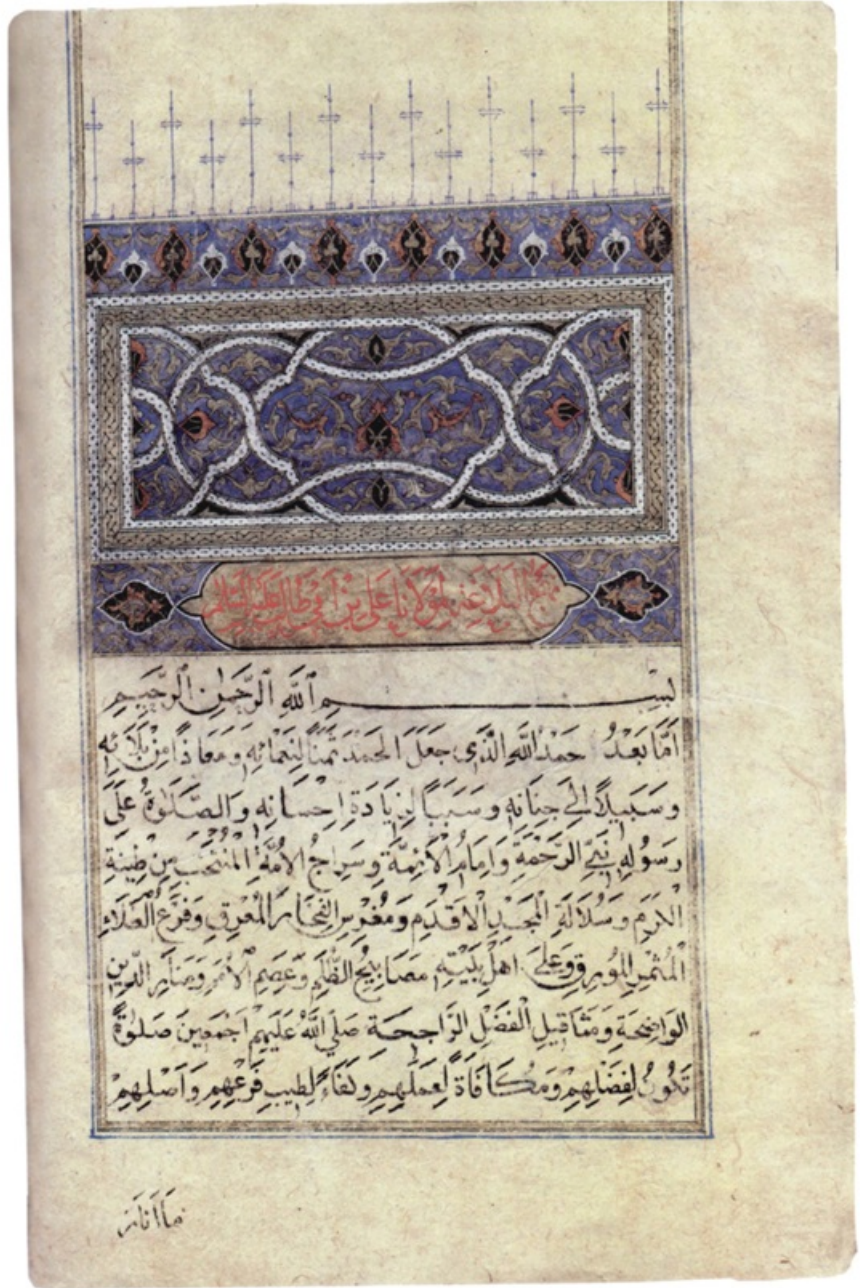 نهج البلاغة لمولانا علي بن أبي طالب عليه السلام
بسم الله الرحمن الرحيم
أَمَّا بَعْدُ حَمْدِ اللّٰهِ الَّذِي جَعَلَ الحَمْدَ ثَمَنًا لِنَعْمَائِهِ وَمَعَاذًا مِنْ بَلَائِهِ
وسَبِيلًا إِلَى جِنَانِهِ وسَبَبًا لِزِيَادَةِ إِحْسَانِهِ وَالصَّلٰوةُ عَلَى
رَسُولِهِ نَبِيِّ الرَّحْمَةِ وَإِمَامِ الأَئِمَّةِ وسِرَاجِ الأُمَّةِ المُنْتَخَبِ مِنْ طِينَةِ
الْكَرَمِ وسُلَالَةِ الْمَجْدِ الْأَقْدَمِ وَمَغْرِسِ الفَخَارِ الْمُعْرِقِ وَفَرْعِ الْعَلَاءِ
الْمُثْمِرِ المُورِقِ وَعَلَى أَهْلِ بَيْتِهِ مَصَابِيحِ الظُّلَمِ وَعِصَمِ الْأُمَمِ وَمَنَارِ الدِّينِ
الوَاضِحَةِ وَمَثَاقِيلِ الْفَضْلِ الرَّاجِحَةِ صَلَّى اللّٰهُ عَلَيْهِمْ أَجْمَعِينَ صَلٰوةً
تَكُونُ لِفَضْلِهِمْ وَمُكَافَاةً لِعَمَلِهِمْ وَكِفَاءً لِطِيبِ فَرْعِهِمْ وَأَصْلِهِمْ
مَا أَنَارَ